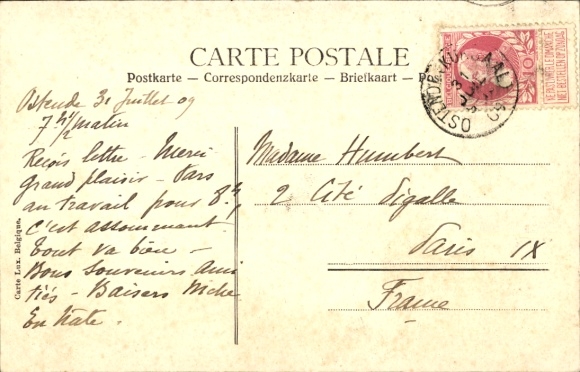 CARTE POSTALE
Postkarte – Correspondenzkarte – Briefkaart – P
Ostende 31 Juillet 09
7 h 1/2 matin
Reçois lettre – Merci
Grand plaisir – Pars
au travail pour 8 h
c'est assommant
Tout va bien –
Bons souvenirs ami
tiés – Baisers
En hâte .
Madame Humbert
2 Cité Pigalle
Paris IX
France
Carte Lux. Belgique.
NE PAS LIVRER LE DIMANCHE
NIET BESTELLEN OP ZONDAG
10